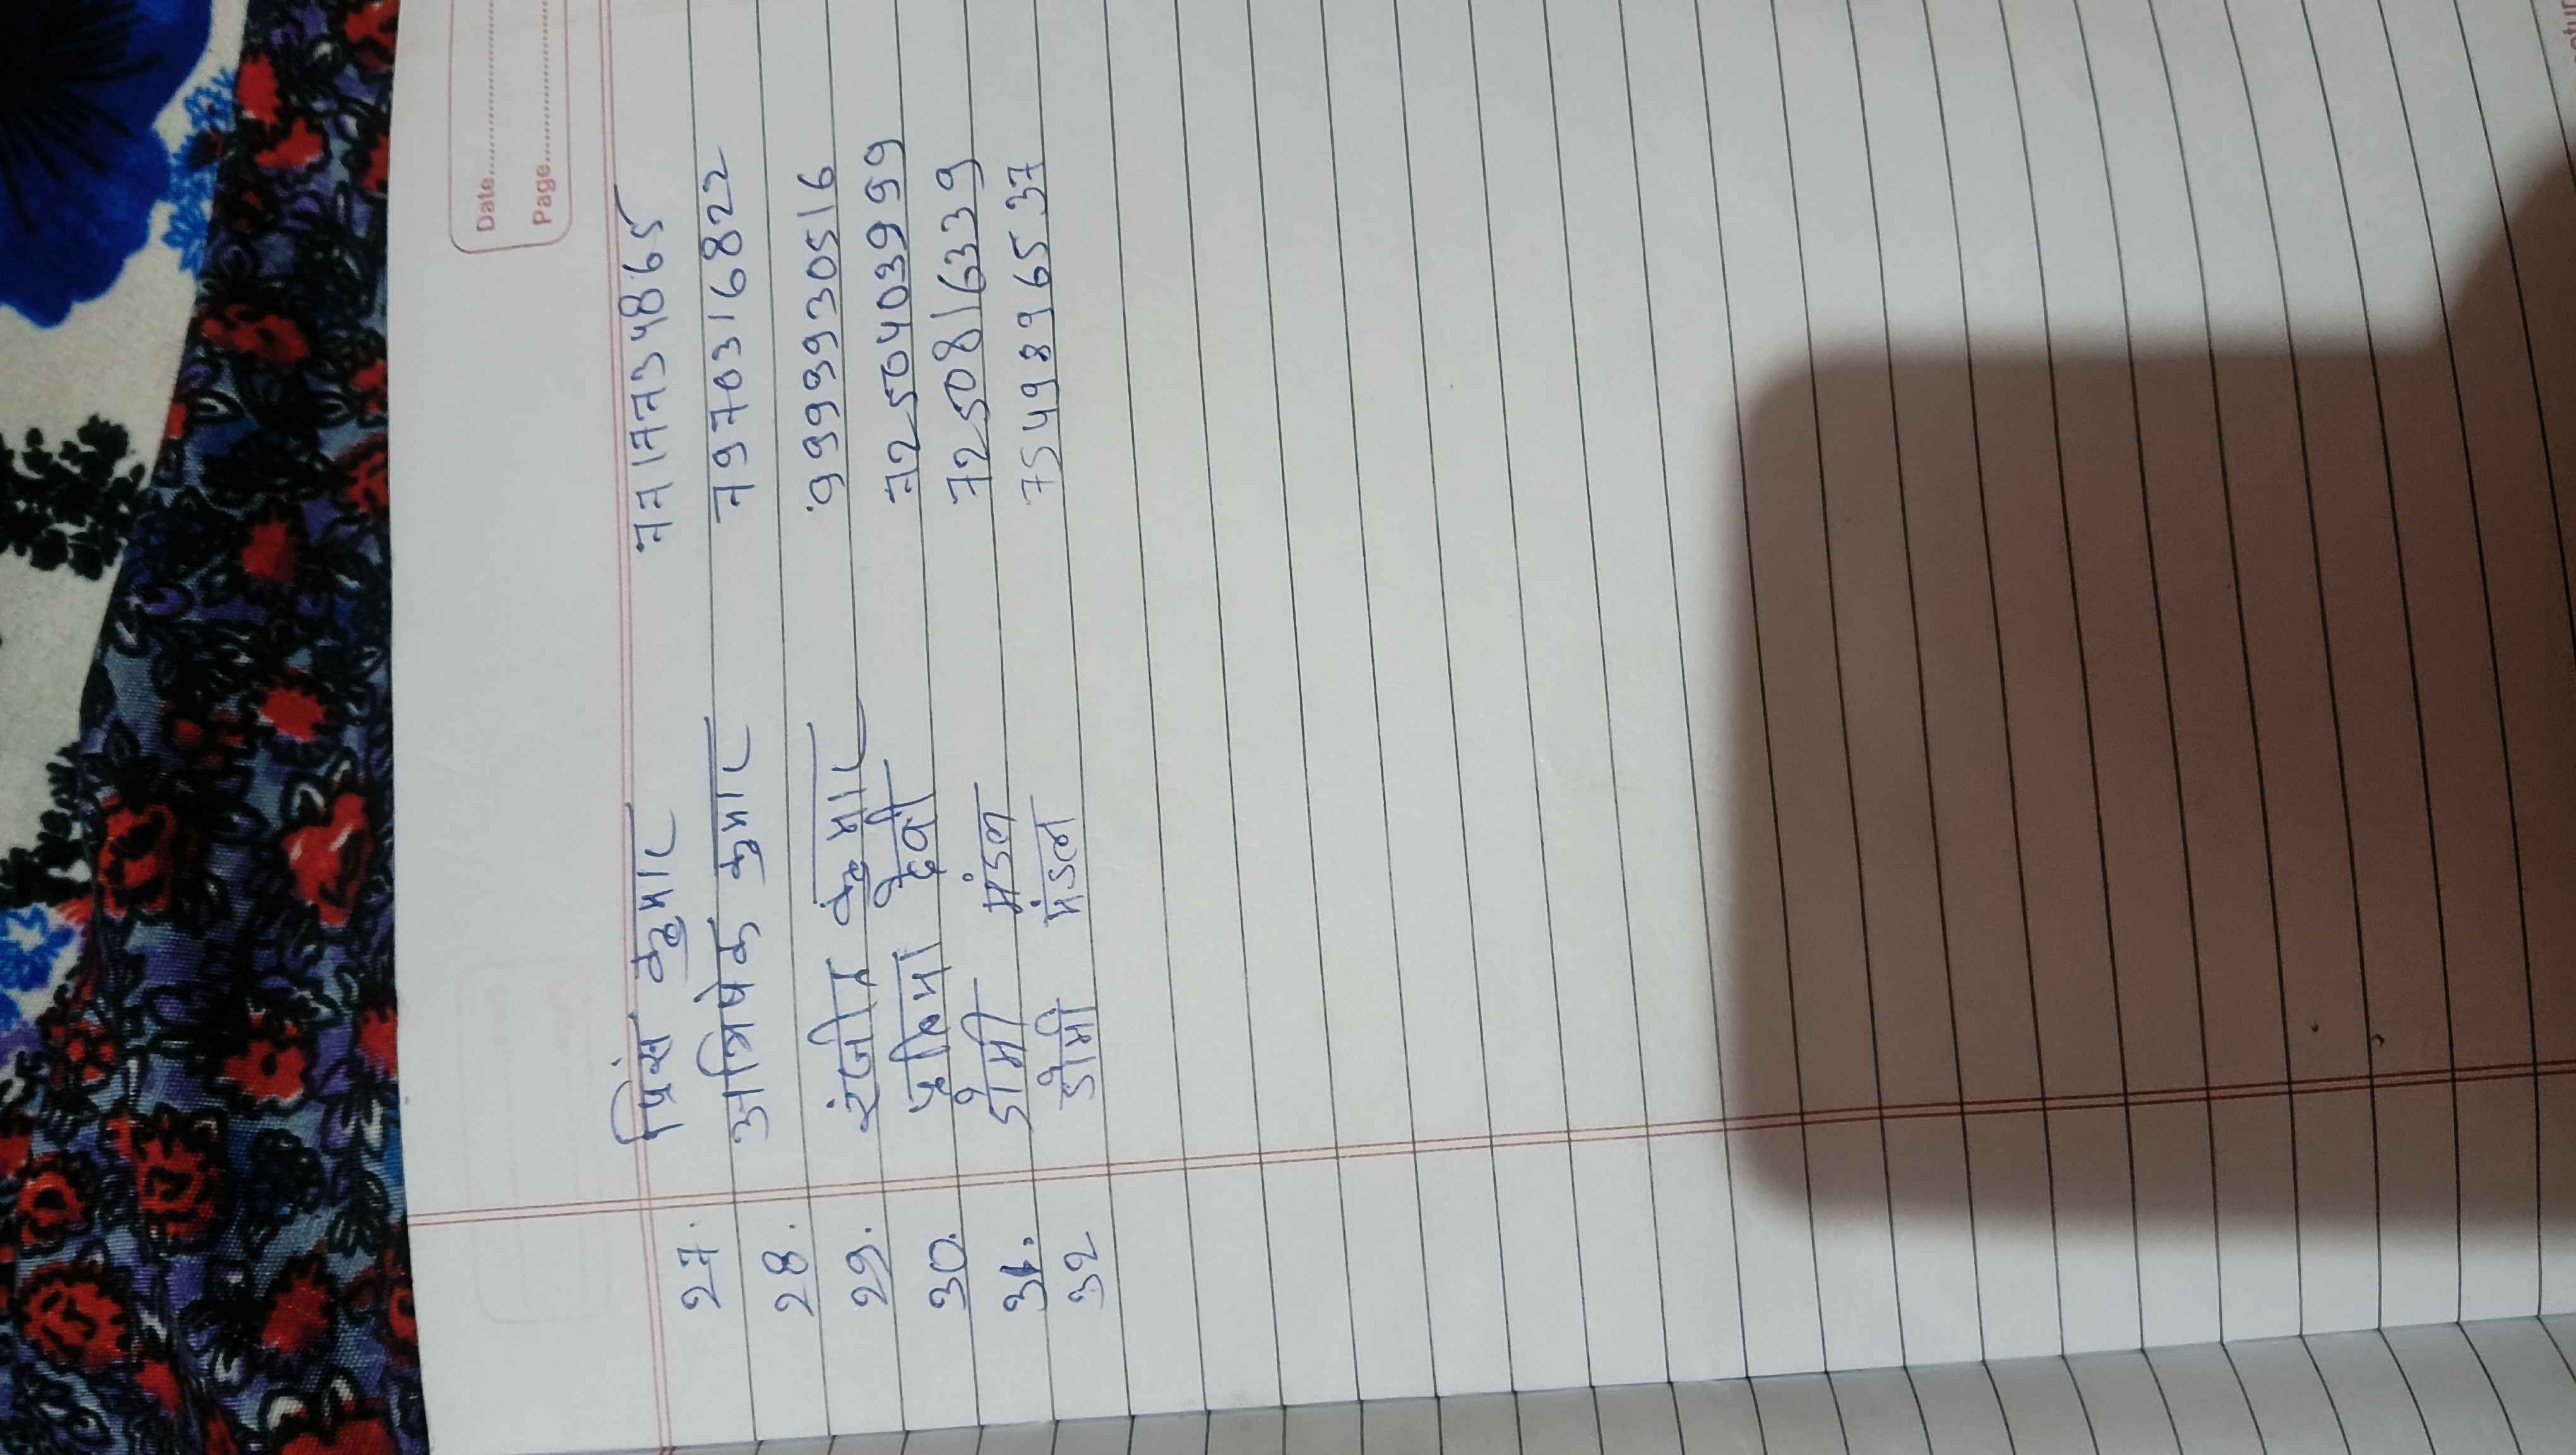 Date
Page
27. प्रिंस कुमार 7717734865
28. अभिषेक कुमार 7970316822
29. रंजीत कुमार 9999930516
30. देवी 7250403999
31. डोमी मंडल 7250816339
32 डोमी मंडल 7549896537